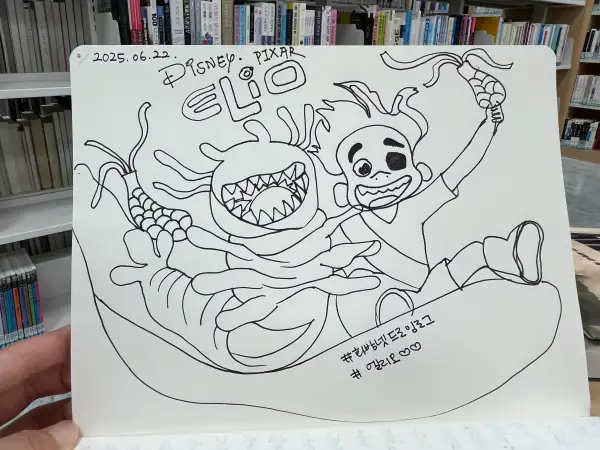 2025.06.22.
DISNEY. PIXAR
ELIO
#화방넷드로잉로그
# 엘리오♡♡